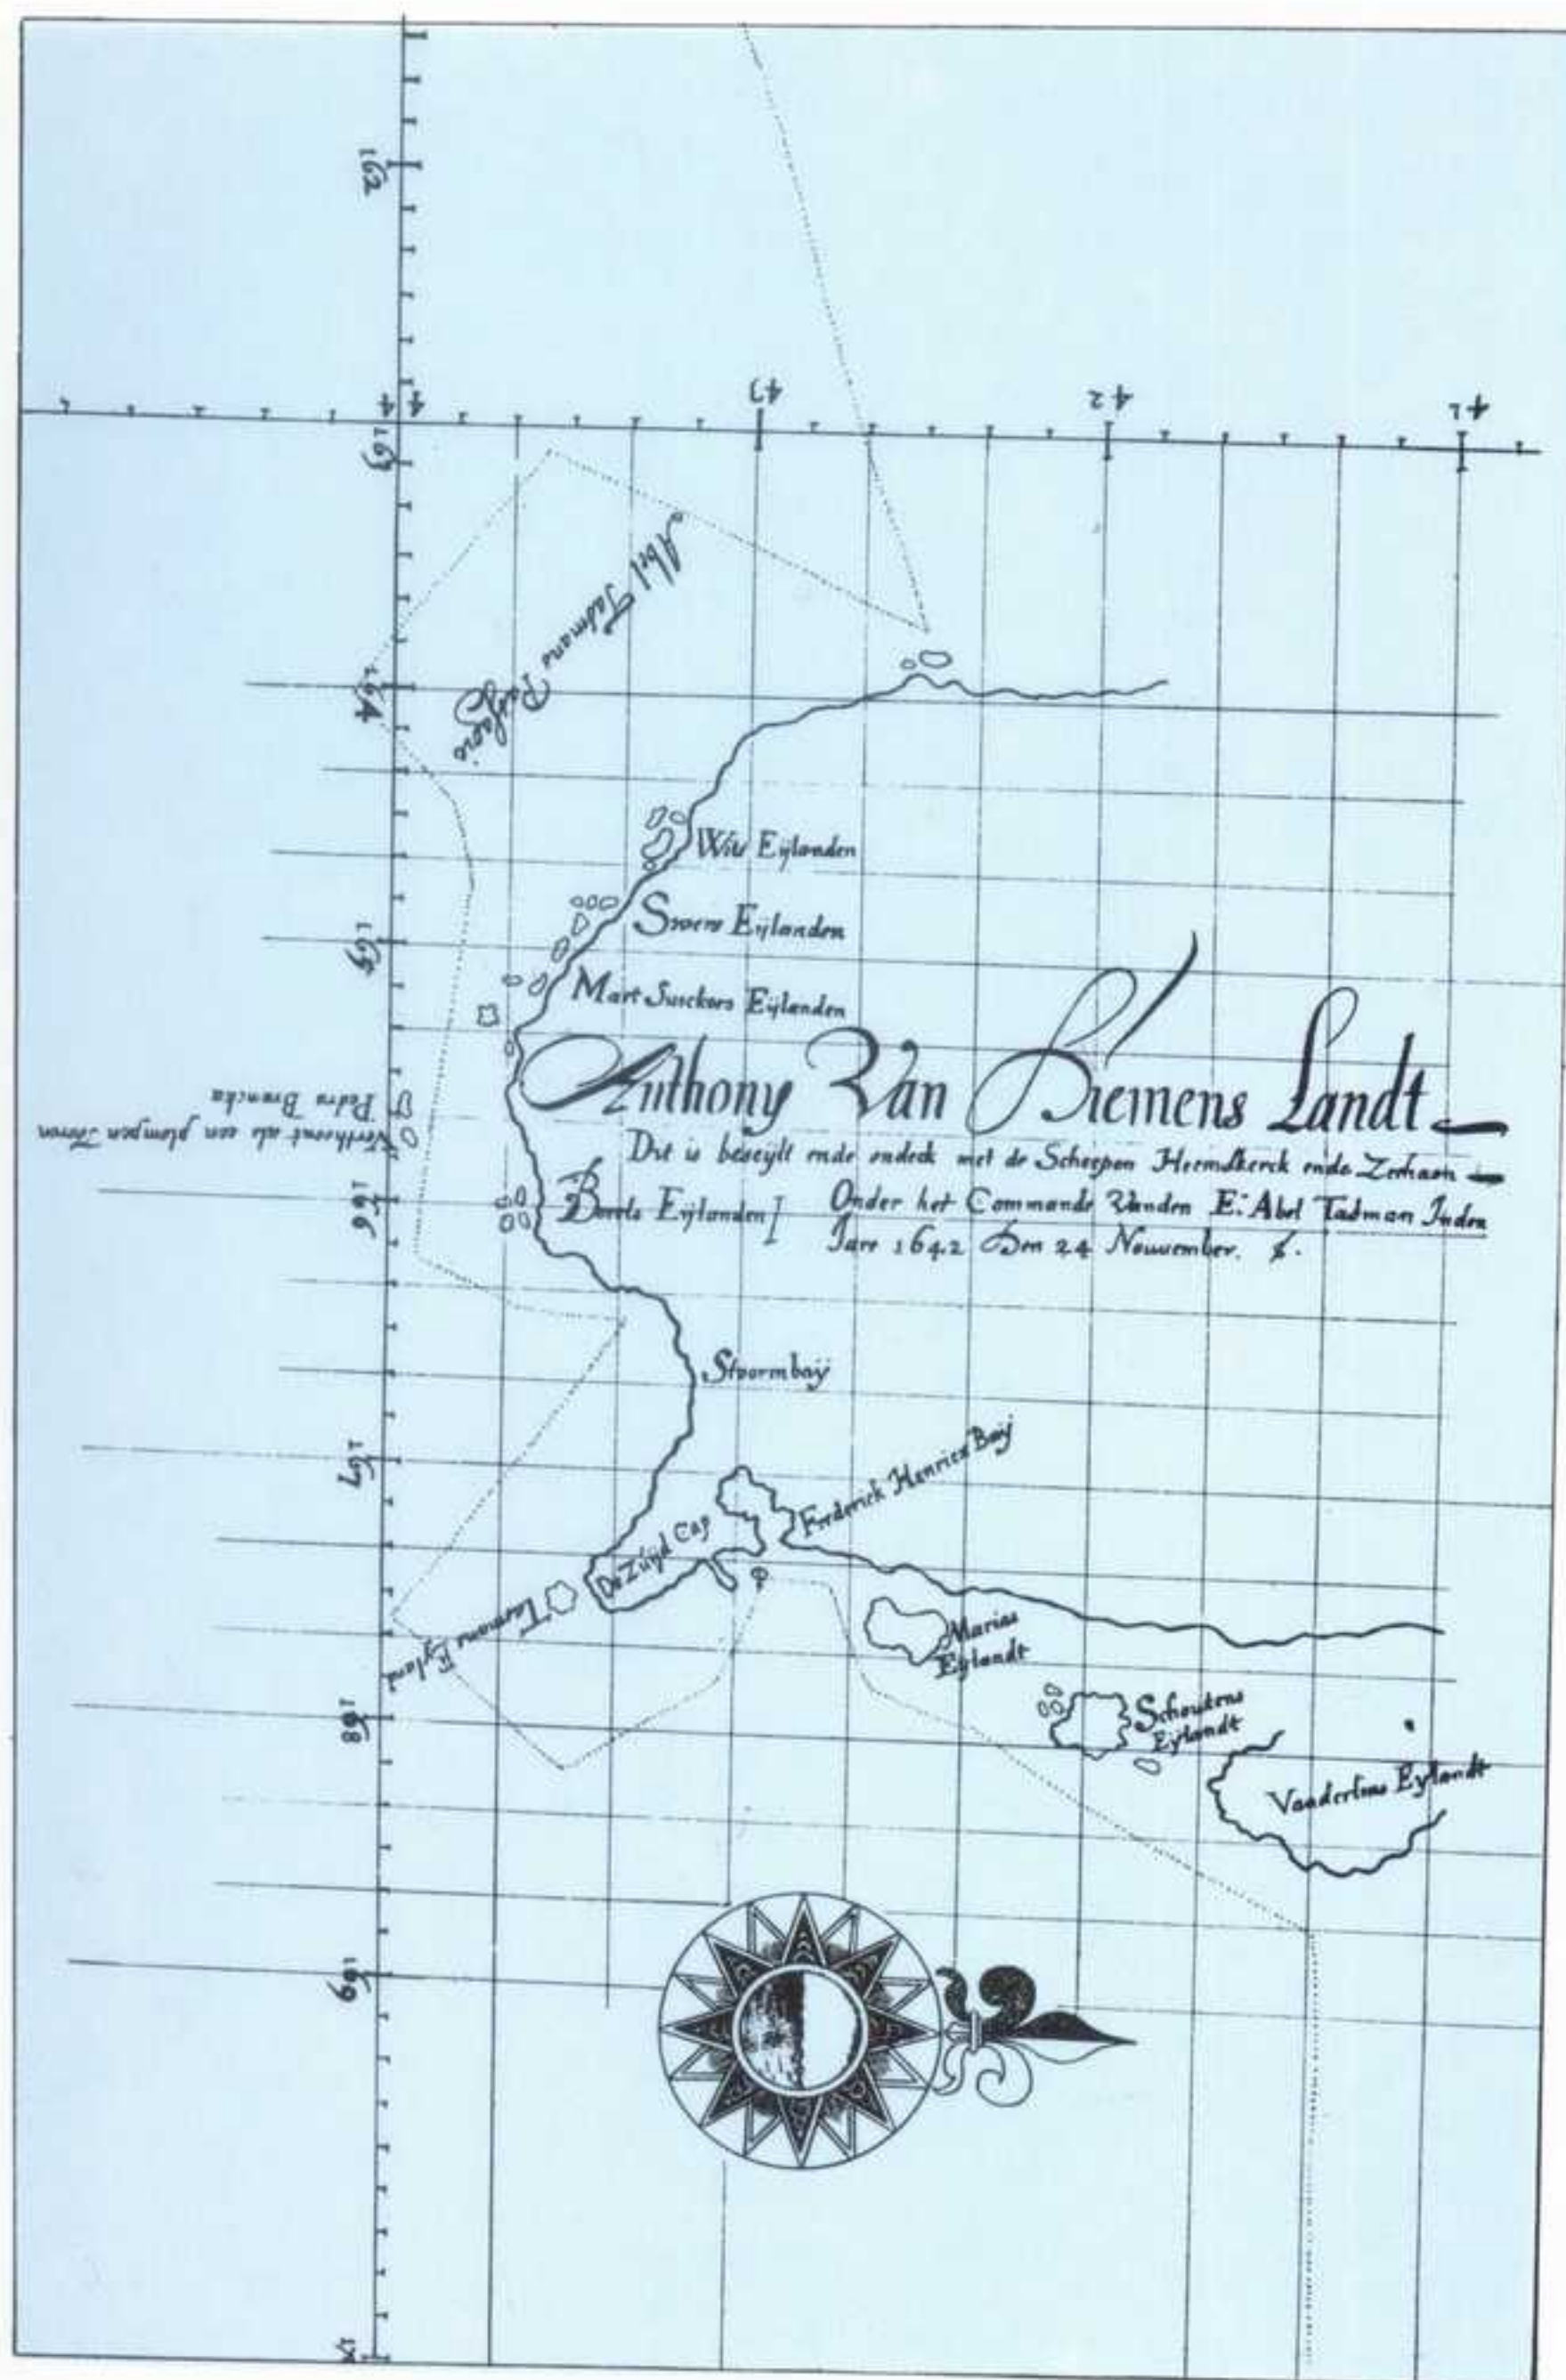 162
43
42
41
44
163
Abel Tasmans
Passagie
164
Wits Eijlanden
Sweers Eijlanden
165
Mart Suickers Eijlanden
Anthony Van Diemens Landt
Pedra Brancka
als een plompen Toren
Dit is beseijlt ende ondeck met de Scheepen Heemskerck ende Zeehaen
166
Boreels Eijlanden
Onder het Commande Vanden E: Abel Tasman Inden
Jare 1642 Den 24 Nouuember.
Stoormbaij
167
Frederick Henricx Baij
De Zuijd Cap
Tasmans Eyland
Marias
Eylandt
168
Schoutens
Eijlandt
Vanderlins Eylandt
169